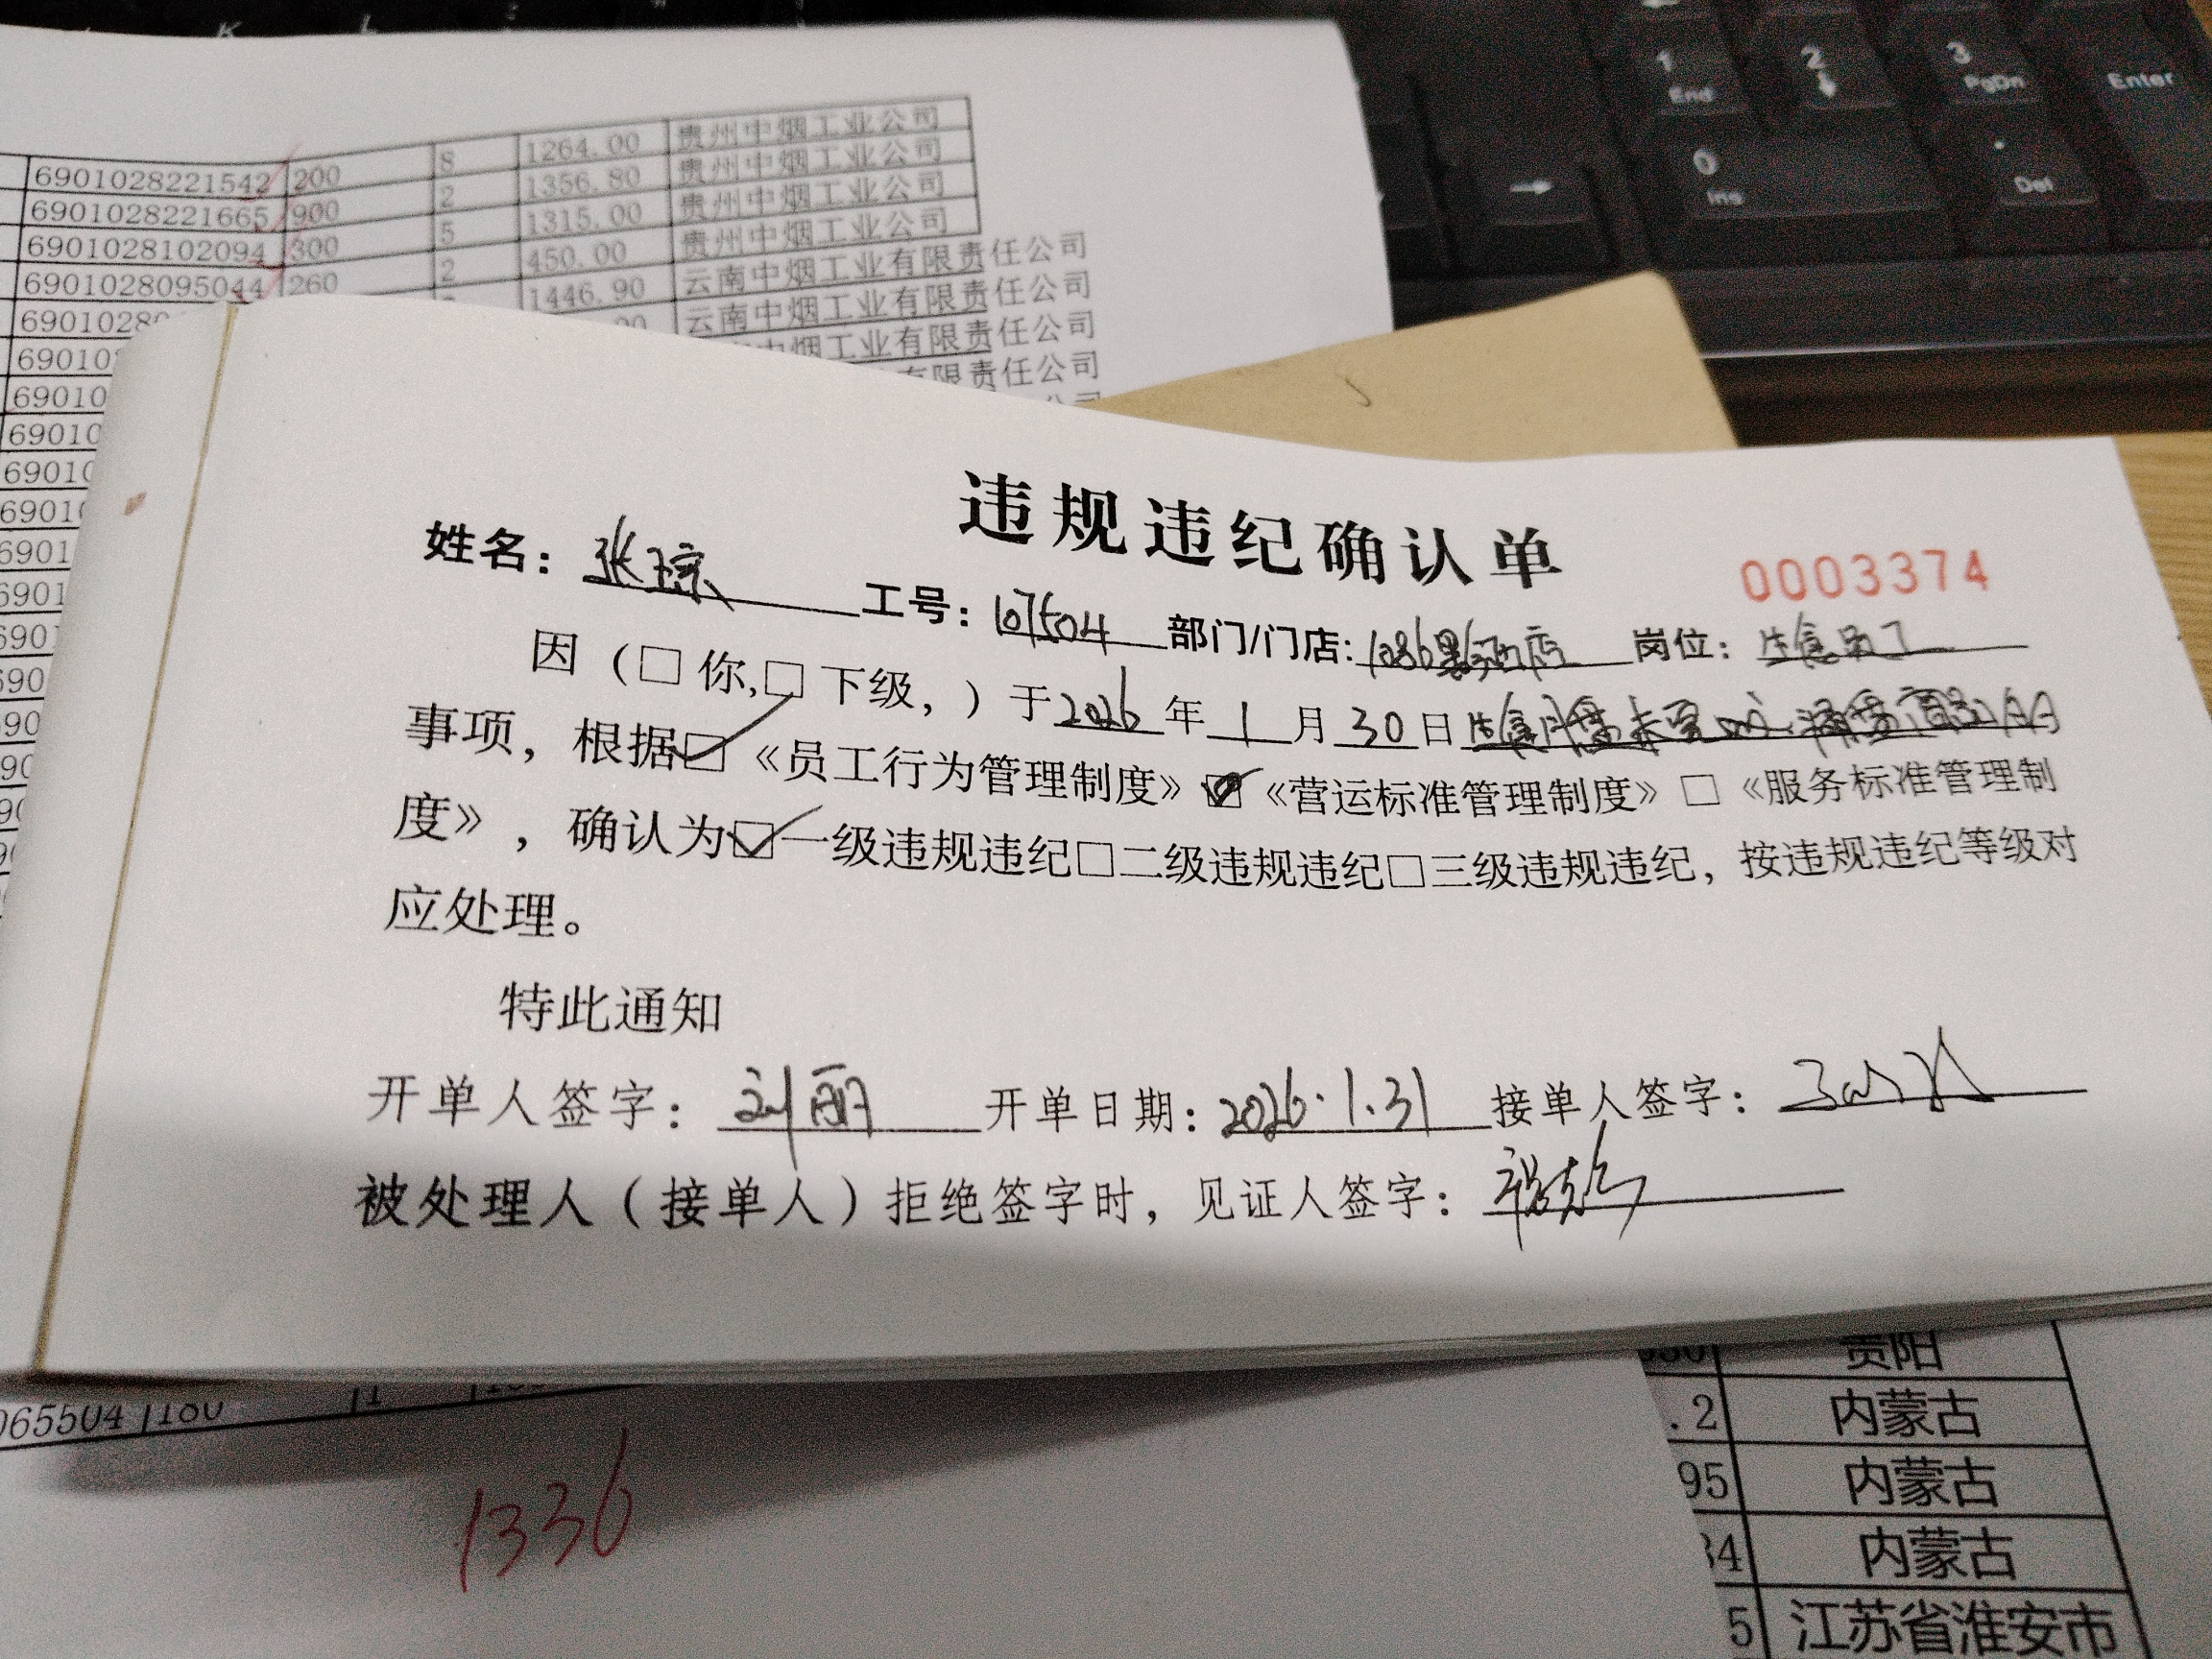 1264.00 贵州中烟工业公司
6901028221542 200 8 1356.80 贵州中烟工业公司
6901028221665 900 2 1315.00 贵州中烟工业公司
6901028102094 300 5 450.00 贵州中烟工业公司
6901028095044 260 2 1446.90 云南中烟工业有限责任公司
云南中烟工业有限责任公司
中烟工业有限责任公司
有限责任公司
违规违纪确认单
0003374
姓名: 张琼 工号: 107504 部门/门店: 岗位: 生食员工
因(□你,□下级,)于2026年1月30日
事项,根据□《员工行为管理制度》☑《营运标准管理制度》□《服务标准管理制
度》,确认为☑一级违规违纪□二级违规违纪□三级违规违纪,按违规违纪等级对
应处理。
特此通知
开单人签字: 刘丽 开单日期: 2026.1.31 接单人签字:
被处理人(接单人)拒绝签字时,见证人签字:
065504 180 1
1336
贵阳
.2 内蒙古
95 内蒙古
34 内蒙古
5 江苏省淮安市
1 End
2
3 PgDn
Enter
0 Ins
. Del